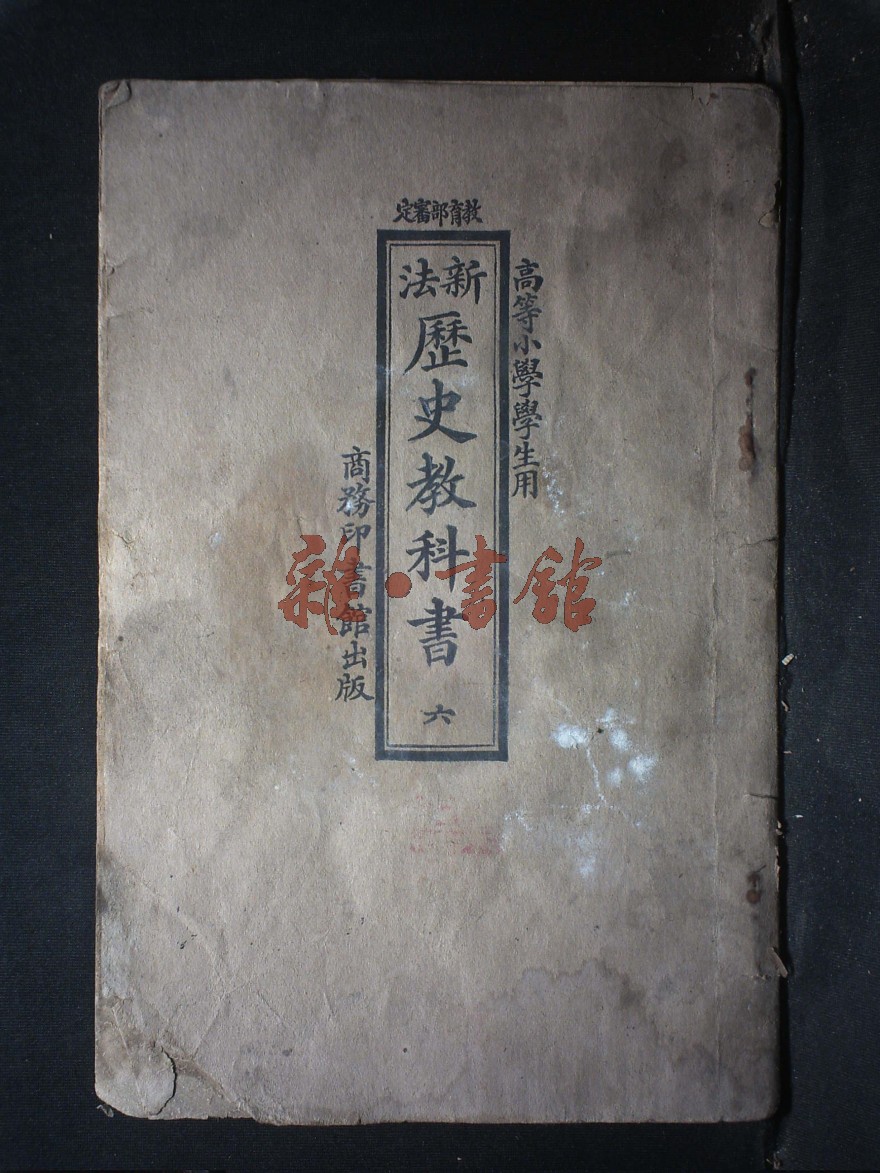 教育部審定
高等小學學生用
新法
歷史教科書 六
商務印書館出版
雜·書館